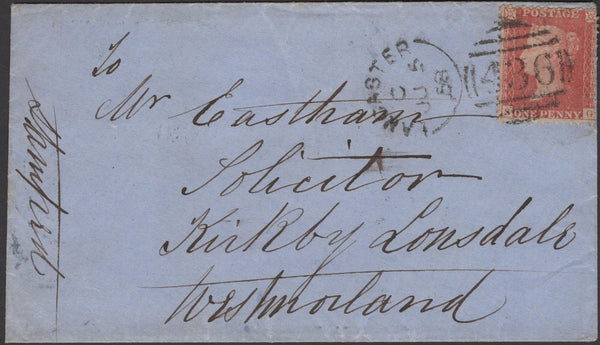 To
Mr Eastham
Solicitor
Kirkby Lonsdale
Westmorland
Stamped
LANCASTER
58
436
POSTAGE
ONE PENNY
G